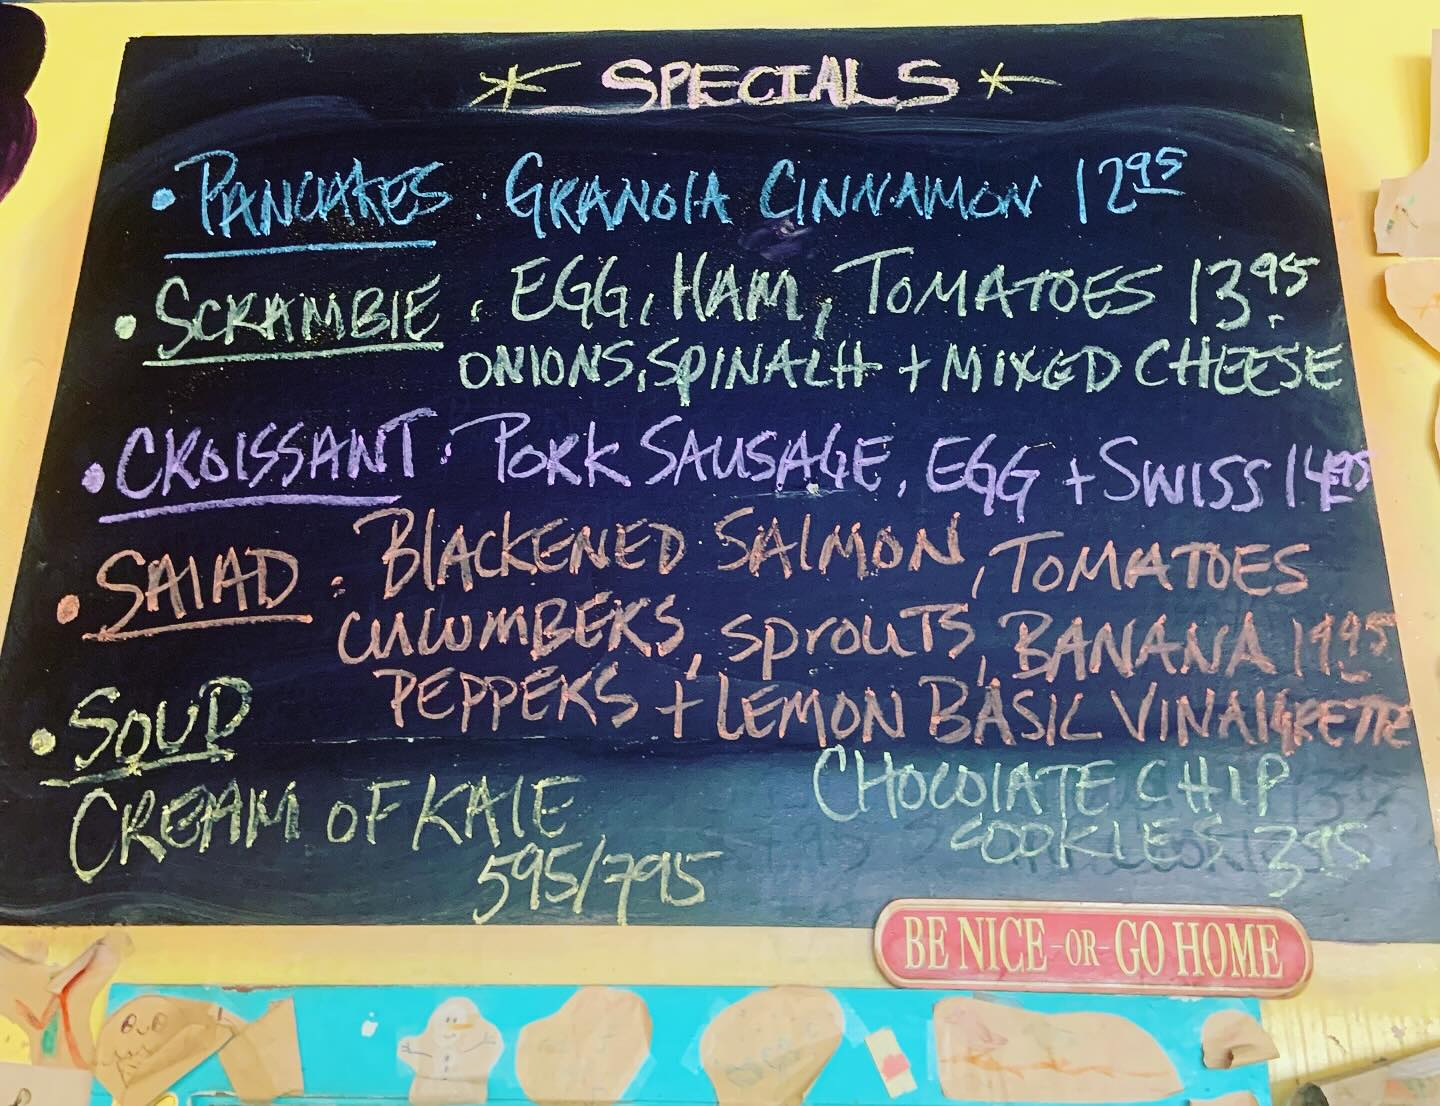 * SPECIALS *
• PANCAKES: GRANOLA CINNAMON 12.95
• SCRAMBLE: EGG, HAM, TOMATOES 13.95
ONIONS, SPINACH + MIXED CHEESE
• CROISSANT: PORK SAUSAGE, EGG + SWISS 14.95
• SALAD: BLACKENED SALMON, TOMATOES
CUCUMBERS, SPROUTS, BANANA 19.95
PEPPERS + LEMON BASIL VINAIGRETTE
• SOUP
CREAM OF KALE
595/795
CHOCOLATE CHIP
COOKIES 395
BE NICE -OR- GO HOME